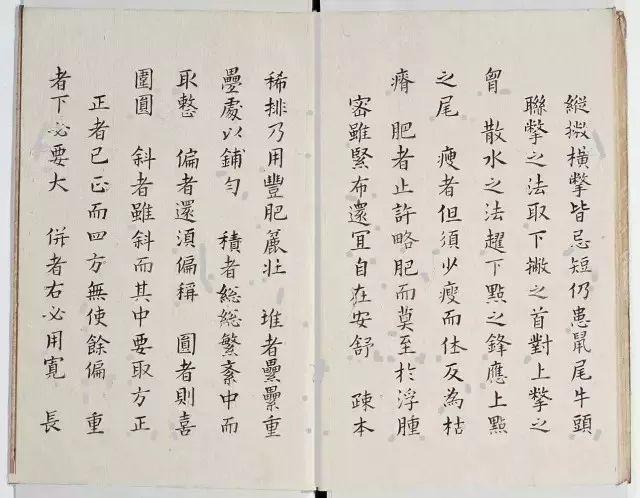 縱撇橫擎皆忌短仍患鼠尾牛頭
聯撇之法取下撇之首對上撇之
胷 散水之法趯下點之鋒應上點
之尾 瘦者但須少瘦而體反為枯
瘠 肥者止許略肥而莫至於浮腫
密雖緊布還宜自在安舒 疎本
稀排乃用豐肥麄壯 堆者壘壘重
疊處以鋪勻 積者総総繁紊中而
取整 偏者還須偏稱 圓者則喜
圍圓 斜者雖斜而其中要取方正
正者已正而四方無使餘偏 重
者下必要大 併者右必用寬 長